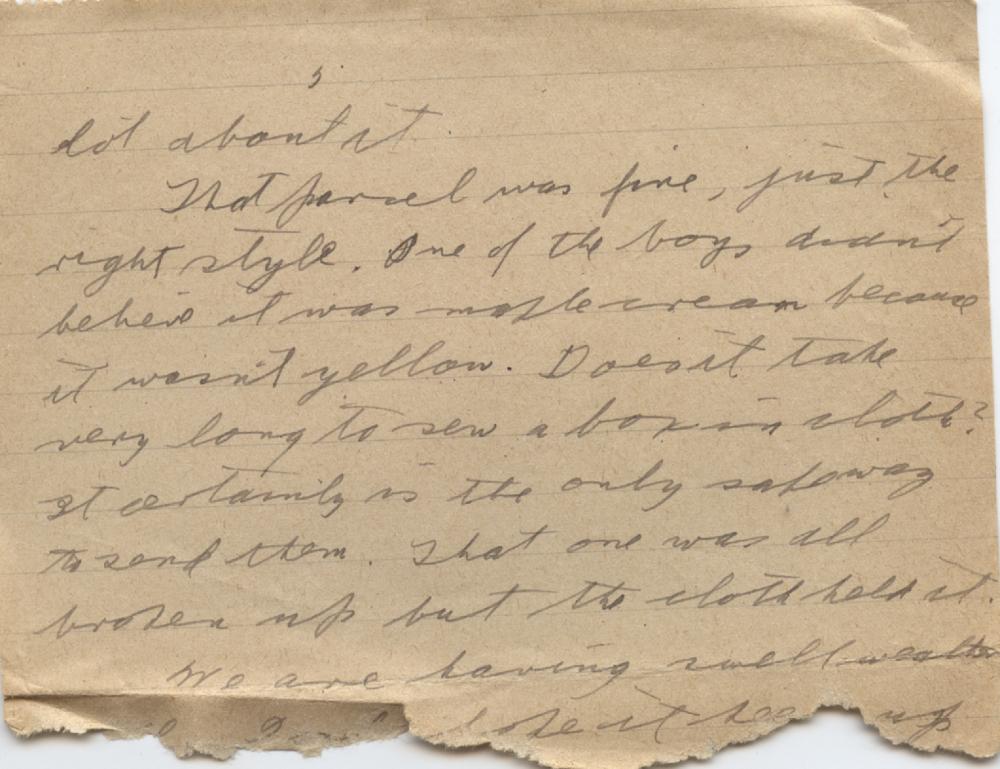 5
lot about it
That parcel was fine, just the
right style. One of the boys didn't
believe it was maple cream because
it wasn't yellow. Doesn't it take
very long to sew a box in cloth?
It certainly is the only safe way
to send them. That one was all
broken up but the cloth held it.
We are having swell weather
hope it keeps up